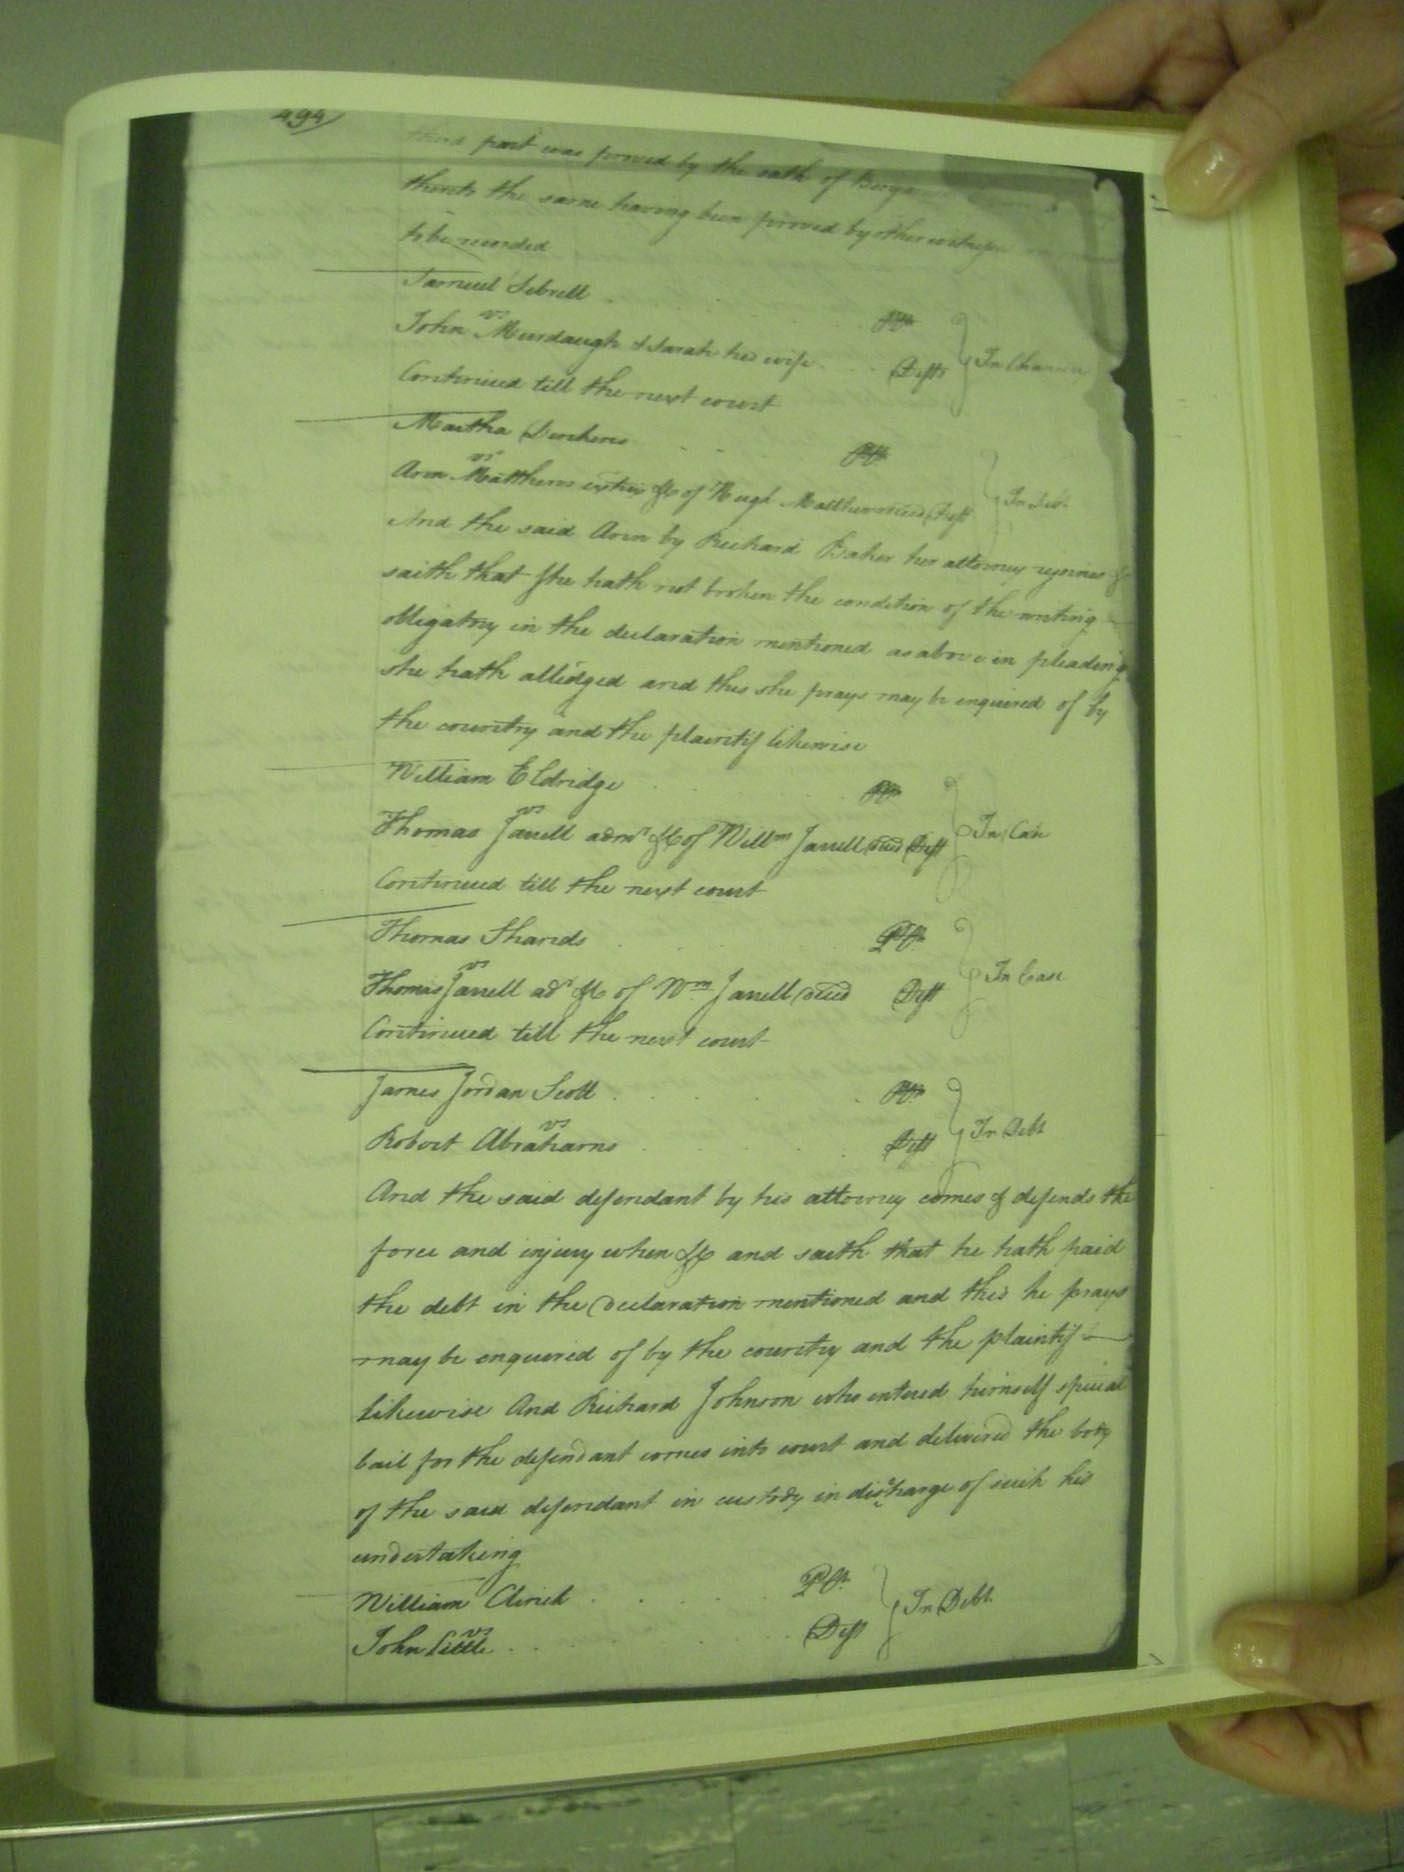 494
third part was proved by the oath of
thereto the same having been proved by other witnesses
to be recorded
Samuel Sebrell Plt
vs
John Murdaugh & Sarah his wife Defts In Chancery
Continued till the next court
Martha Plt
vs
Ann Matthews &c of Hugh Matthews deced Deft In Debt
And the said Ann by Richard Baker her attorney rejoines &
saith that she hath not broken the condition of the writing
obligatory in the declaration mentioned as above in pleading
she hath alledged and this she prays may be enquired of by
the country and the plaintif likewise
William Eldridge Plt
vs
Thomas Jarrell admr &c of Willm Jarrell deced Deft In Case
Continued till the next court
Thomas Shands Plt
vs
Thomas Jarrell adr &c of Wm Jarrell deced Deft In Case
Continued till the next court
James Jordan Scott Plt
vs
Robert Abrahams Deft In Debt
And the said defendant by his attorney comes & defends the
force and injury when &c and saith that he hath paid
the debt in the declaration mentioned and this he prays
may be enquired of by the country and the plaintif
likewise And Richard Johnson who entered himself special
bail for the defendant comes into court and delivered the body
of the said defendant in custody in discharge of such his
undertaking
William Plt
vs
John Little Deft In Debt